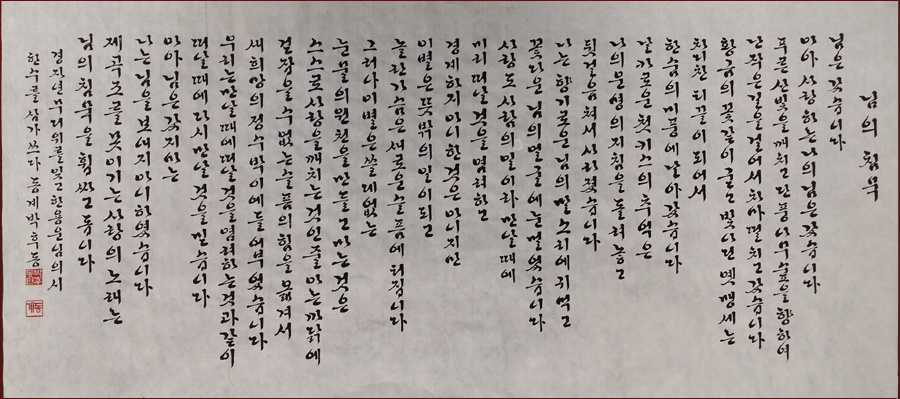 님의 침묵
님은 갔습니다
아아 사랑하는 나의 님은 갔습니다
푸른 산빛을 깨치고 단풍나무숲을 향하여
난 작은 길을 걸어서 차마 떨치고 갔습니다
황금의 꽃같이 굳고 빛나던 옛 맹세는
차디찬 티끌이 되어서
한숨의 미풍에 날아갔습니다
날카로운 첫키스의 추억은
나의 운명의 지침을 돌려놓고
뒷걸음쳐서 사라졌습니다
나는 향기로운 님의 말소리에 귀먹고
꽃다운 님의 얼굴에 눈멀었습니다
사랑도 사람의 일이라 만날 때에
미리 떠날 것을 염려하고
경계하지 아니한 것은 아니지만
이별은 뜻밖의 일이 되고
놀란 가슴은 새로운 슬픔에 터집니다
그러나 이별은 쓸데없는
눈물의 원천을 만들고 마는 것은
스스로 사랑을 깨치는 것인 줄 아는 까닭에
걷잡을 수 없는 슬픔의 힘을 옮겨서
새 희망의 정수박이에 들어부었습니다
우리는 만날 때에 떠날 것을 염려하는 것과 같이
떠날 때에 다시 만날 것을 믿습니다
아아 님은 갔지마는
나는 님을 보내지 아니하였습니다
제 곡조를 못이기는 사랑의 노래는
님의 침묵을 휩싸고 돕니다
경진년 무더위를 잊고 한용운님의 시
한수를 삼가 쓰다 동계 박후동